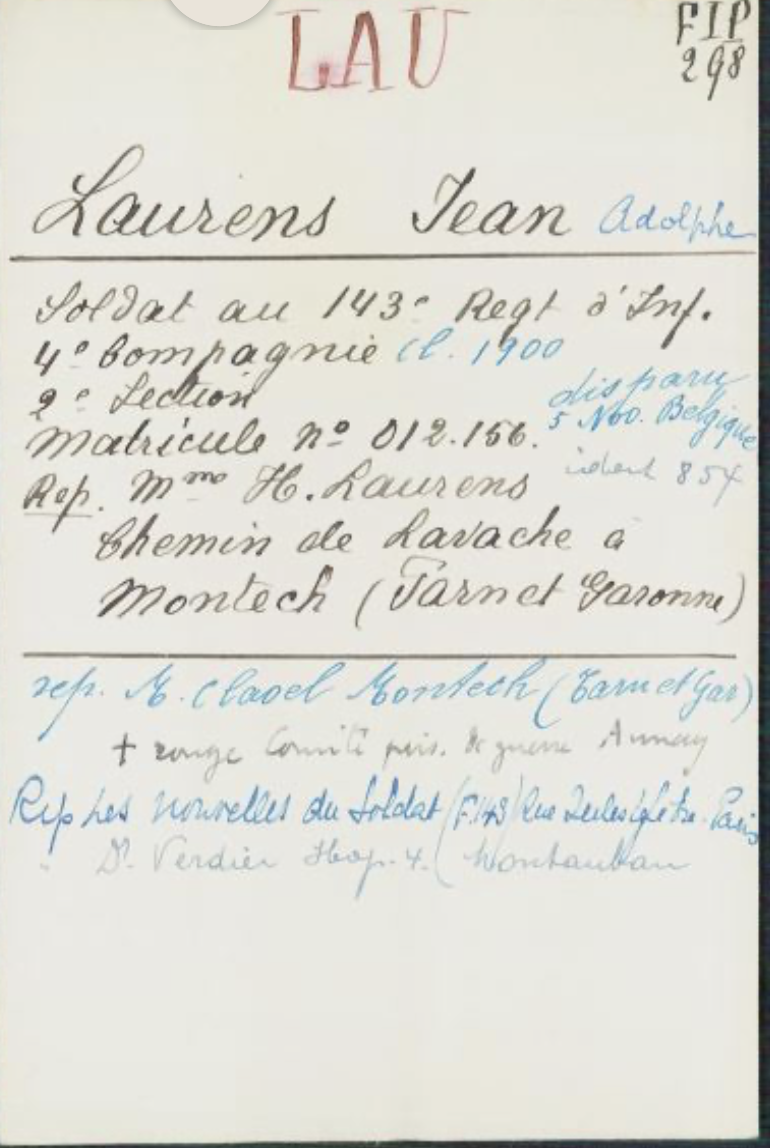 LAU
FIP
298
Laurens Jean Adolphe
Soldat au 143e Regt d'Inf.
4e Compagnie cl. 1900
2e Section
disparu
5 Nov. Belgique
Matricule no 012.156.
ident 854
Rep. Mme H. Laurens
Chemin de Lavache à
Montech (Tarn et Garonne)
rep. M. Clavel Montech (Tarn et Gar)
+ rouge Comité pris. de guerre
Rep Les Nouvelles du Soldat Rue Paris
" Dr. Verdier Hop. 4. (Montauban